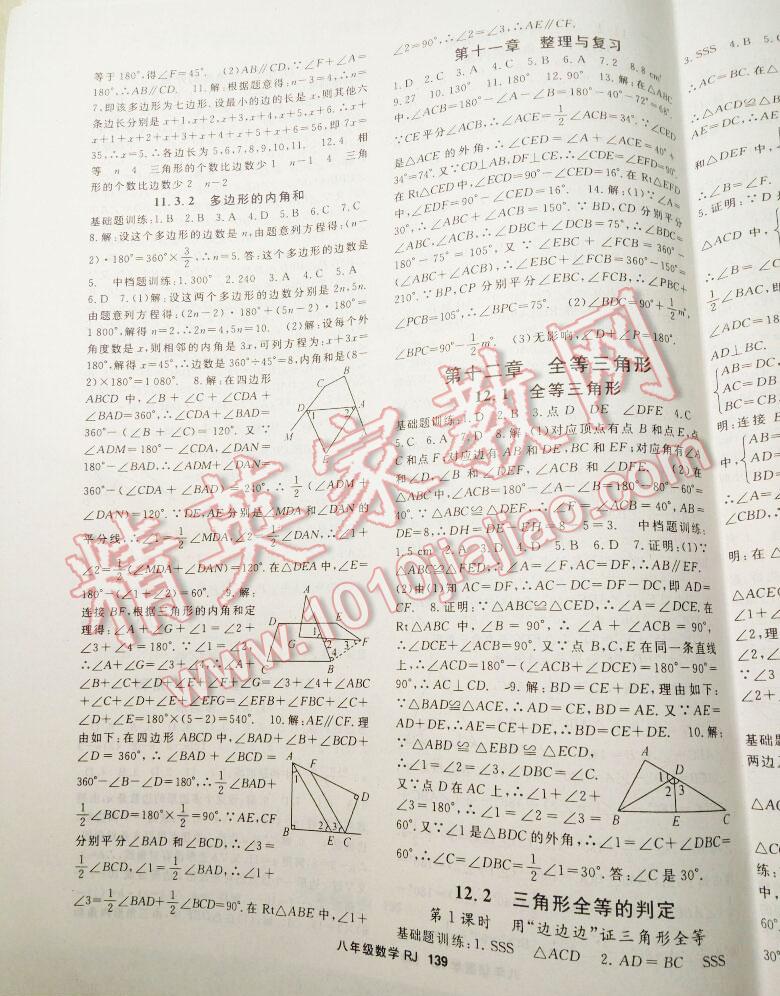 等于180°,得∠F=45°. (2)AB∥CD,∵∠F+∠A=
180°,∴AB∥CD. 11.解:根据题意得:n-3=4,∴n=
7,即该多边形为七边形,设最小的边的长是x,则其他六
条边长分别是x+1,x+2,x+3,x+4,x+5,x+6.∴x+
x+1+x+2+x+3+x+4+x+5+x+6=56,即7x=
35,∴x=5.∴各边长为5,6,7,8,9,10,11. 12.4 相
等 n 4 三角形的个数比边数少1 n-1 4 三角
形的个数比边数少2 n-2
11.3.2 多边形的内角和
基础题训练:1.B 2.B 3.A 4.D 5.B 6.C 7.C
8.解:设这个多边形的边数是n,由题意列方程得:(n-
2)·180°=360°×3/2,∴n=5.答:这个多边形的边数是
5. 中档题训练:1.300° 2.240 3.A 4.C 5.A
6.D 7.(1)解:设这两个多边形的边数分别是2n,5n.
由题意列方程得:(2n-2)·180°+(5n-2)·180°=
1 800°,解得n=2,∴2n=4,5n=10. (2)解:设每个外
角度数是x,则相邻的内角是3x,可列方程为:x+3x=
180°,解得x=45°,∴边数是360°÷45°=8,内角和是(8-
2)×180°=1 080°. 8.解:在四边形
ABCD中,∠B+∠C+∠CDA+
∠BAD=360°,∴∠CDA+∠BAD=
360°-(∠B+∠C)=120°.又∵
∠ADM=180°-∠CDA,∠DAN=
180°-∠BAD,∴∠ADM+∠DAN=
360°-(∠CDA+∠BAD)=240°,∴1/2(∠ADM+
∠DAN)=120°.∵DE,AE分别是∠MDA和∠DAN的
平分线,∴∠1=1/2∠MDA,∠2=1/2∠DAN,∴∠1+
∠2=1/2(∠MDA+∠DAN)=120°.在△DEA中,∠E=
180°-(∠1+∠2)=60°. 9.解:
连接BF,根据三角形的内角和定
理得:∠A+∠G+∠1=∠2+
∠3+∠4=180°.∵∠1=∠2,
∴∠A+∠G=∠3+∠4,∴∠A+
∠B+∠C+∠D+∠E+∠F+∠G=∠3+∠4+∠ABC
+∠C+∠D+∠E+∠EFG=∠EFB+∠FBC+∠C+
∠D+∠E=180°×(5-2)=540°. 10.解:AE∥CF.理
由如下:在四边形ABCD中,∠BAD+∠B+∠BCD+
∠D=360°,∴∠BAD+∠BCD=
360°-∠B-∠D=180°,∴1/2∠BAD+
1/2∠BCD=180°×1/2=90°.∵AE,CF
分别平分∠BAD和∠BCD,∴∠3=
1/2∠BCD,∠1=1/2∠BAD,∴∠1+
∠3=1/2∠BAD+1/2∠BCD=90°.在Rt△ABE中,∠1+
∠2=90°,∴∠2=∠3,∴AE∥CF.
第十一章 整理与复习
1.D 2.C 3.A 4.C 5.B 6.A 7.2 8.8 cm²
9.27 10.130° 11.180° 12.90° 13.解:在△ABC
中,∠ACB=180°-∠A-∠B=180°-40°-72°=68°.
∵CE平分∠ACB,∴∠ACE=1/2∠ACB=34°.∵∠CED
是△ACE的外角,∴∠CED=∠A+∠ACE=40°+
34°=74°.又∵CD⊥AB,DF⊥CE,∴∠CDE=∠EFD=90°.
在Rt△CED中,∠ECD=90°-∠CED=16°.在Rt△EFD
中,∠EDF=90°-∠CED=16°. 14.解:(1)∵∠A=
30°,∴∠ABC+∠ACB=150°.∵BD,CD分别平分
∠ABC,∠ACB,∴∠DBC+∠DCB=75°,∴∠BDC=
180°-75°=105°,又∵∠EBC+∠FCB=360°-
(∠ABC+∠ACB),∴∠EBC+∠FCB=360°-150°=
210°.∵BP,CP分别平分∠EBC,∠FCB,∴∠PBC+
∠PCB=105°,∴∠BPC=75°. (2)∠BDC=90°+1/2m°,
∠BPC=90°-1/2m°. (3)无影响,∠D+∠P=180°.
第十二章 全等三角形
12.1 全等三角形
基础题训练:1.D 2.B 3.点D DE ∠DFE 4.C
5.C 6.A 7.D 8.解:(1)对应顶点有点B和点E,点
C和点F;对应边有AB和DE,BC和EF;对应角有∠A
和∠D,∠B和∠DEF,∠ACB和∠DFE. (2)在
△ABC中,∠ACB=180°-∠A-∠B=180°-80°-60°=
40°.∵△ABC≌△DEF,∴∠F=∠ACB=40°,AB=
DE=8,∴DH=DE-EH=8-5=3. 中档题训练:
1.5 cm 2.A 3.D 4.D 5.B 6.D 7.证明:(1)∵
△ABC≌△FED,∴∠A=∠F,AC=DF,∴AB∥EF.
(2)由(1)知AC=DF,∴AC-DC=DF-DC,即AD=
CF. 8.证明:∵△ABC≌△CED,∴∠A=∠DCE.在
Rt△ABC中,∠B=90°,∴∠A+∠ACB=90°,
∴∠DCE+∠ACB=90°.又∵点B,C,E在同一条直线
上,∴∠ACD=180°-(∠ACB+∠DCE)=180°-90°=
90°,∴AC⊥CD. 9.解:BD=CE+DE,理由如下:
∵△BAD≌△ACE,∴AD=CE,BD=AE.又∵AE=
AD+DE,∴AE=CE+DE,∴BD=CE+DE. 10.解:
∵△ABD≌△EBD≌△ECD,
∴∠1=∠2=∠3,∠DBC=∠C.
又∵点D在AC上,∴∠1+∠2+
∠3=180°,∴∠1=∠2=∠3=
60°.又∵∠1是△BDC的外角,∴∠1=∠C+∠DBC=
60°,∴∠C=∠DBC=1/2∠1=30°.答:∠C是30°.
12.2 三角形全等的判定
第1课时 用“边边边”证三角形全等
基础题训练:1.SSS △ACD 2.AD=BC SSS
八年级数学 RJ 139
3.SSS 4.B 5.C
精英家教网
www.1010jiajiao.com